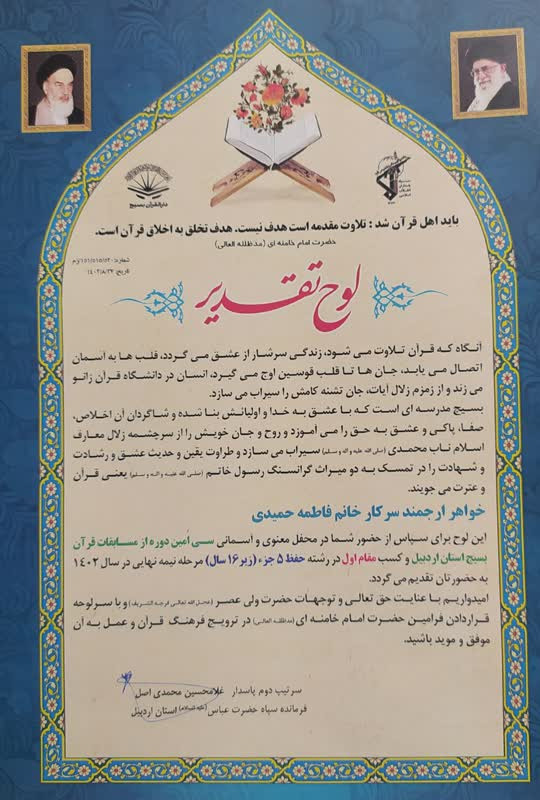 دارالقرآن بسیج
باید اهل قرآن شد : تلاوت مقدمه است هدف نیست. هدف تخلق به اخلاق قرآن است.
حضرت امام خامنه ای (مدظلله العالی)
تاریخ: ۱۴۰۲/۸/۲۴
لوح تقدیر
آنگاه که قرآن تلاوت می شود، زندگی سرشار از عشق می گردد، قلب ها به آسمان
اتصال می یابد، جان ها تا قلب قوسین اوج می گیرد، انسان در دانشگاه قرآن زانو
می زند و از زمزم زلال آیات، جان تشنه کامش را سیراب می سازد.
بسیج مدرسه ای است که با عشق به خدا و اولیائش بنا شده و شاگردان آن اخلاص،
صفا، پاکی و عشق به حق را می آموزد و روح و جان خویش را از سرچشمه زلال معارف
اسلام ناب محمدی (صلی الله علیه و اله و سلم) سیراب می سازد و طراوت یقین و حدیث عشق و رشادت
و شهادت را در تمسک به دو میراث گرانسنگ رسول خاتم (صلی الله علیـه و الـه و سلم) یعنی قرآن
و عترت می جویند.
خواهر ارجمند سرکار خانم فاطمه حمیدی
این لوح برای سپاس از حضور شما در محفل معنوی و آسمانی سـی اُمین دوره از مسـابقات قرآن
بسیج استان اردبیل و کسب مقام اول در رشته حفظ ۵ جزء (زیر ۱۶ سال) مرحله نیمه نهایی در سال ۱۴۰۲
به حضورتان تقدیم می گردد.
امیدواریم با عنایت حق تعالی و توجهات حضرت ولی عصر (عجـل الله تعالـی فرجـه الشـریف) و با سرلوحه
قراردادن فرامین حضرت امام خامنه ای (مدظلـه العالـی) در ترویـج فرهنـگ قرآن و عمل به آن
موفق و موید باشید.
سرتیپ دوم پاسدار غلامحسین محمدی اصل
فرمانده سپاه حضرت عباس (علیه السلام) استان اردبیل